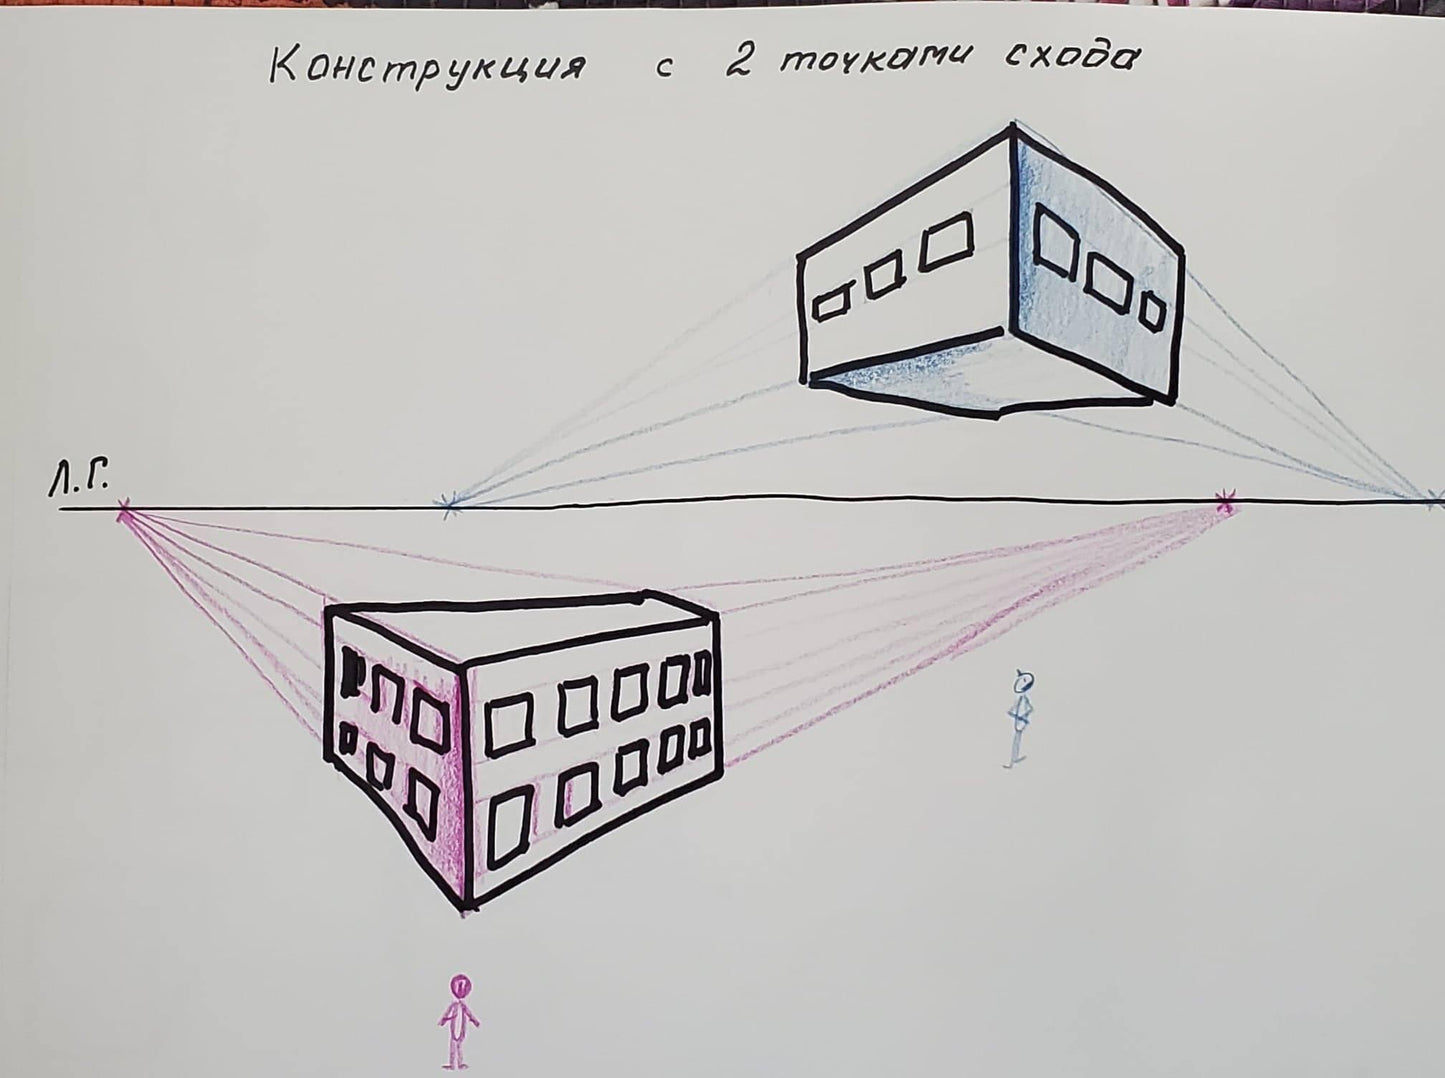 Конструкция с 2 точками схода
Л.Г.